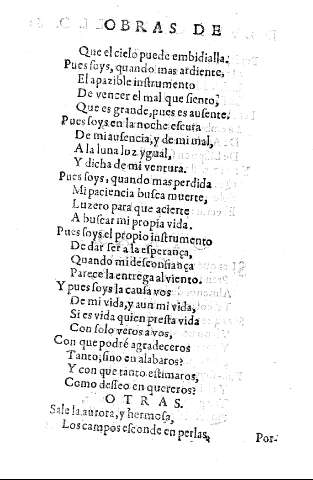 OBRAS DE
Que el cielo puede embidialla.
Pues soys, quando mas ardiente,
El apazible instrumento
De vencer el mal que siento,
Que es grande, pues es ausente.
Pues soys en la noche escura
De mi ausencia, y de mi mal,
A la luna luz ygual,
Y dicha de mi ventura.
Pues soys, quando mas perdida
Mi paciencia busca muerte,
Luzero para que acierte
A buscar mi propia vida.
Pues soys el propio instrumento
De dar ser a la esperança,
Quando mi desconfiança
Parece la entrega al viento.
Y pues soys la causa vos
De mi vida, y aun mi vida,
Si es vida quien presta vida
Con solo veros a vos,
Con que podré agradeceros
Tanto, sino en alabaros?
Y con que tanto estimaros,
Como desseo en quereros?
OTRAS.
Sale la aurora, y hermosa,
Los campos esconde en perlas,
Por-